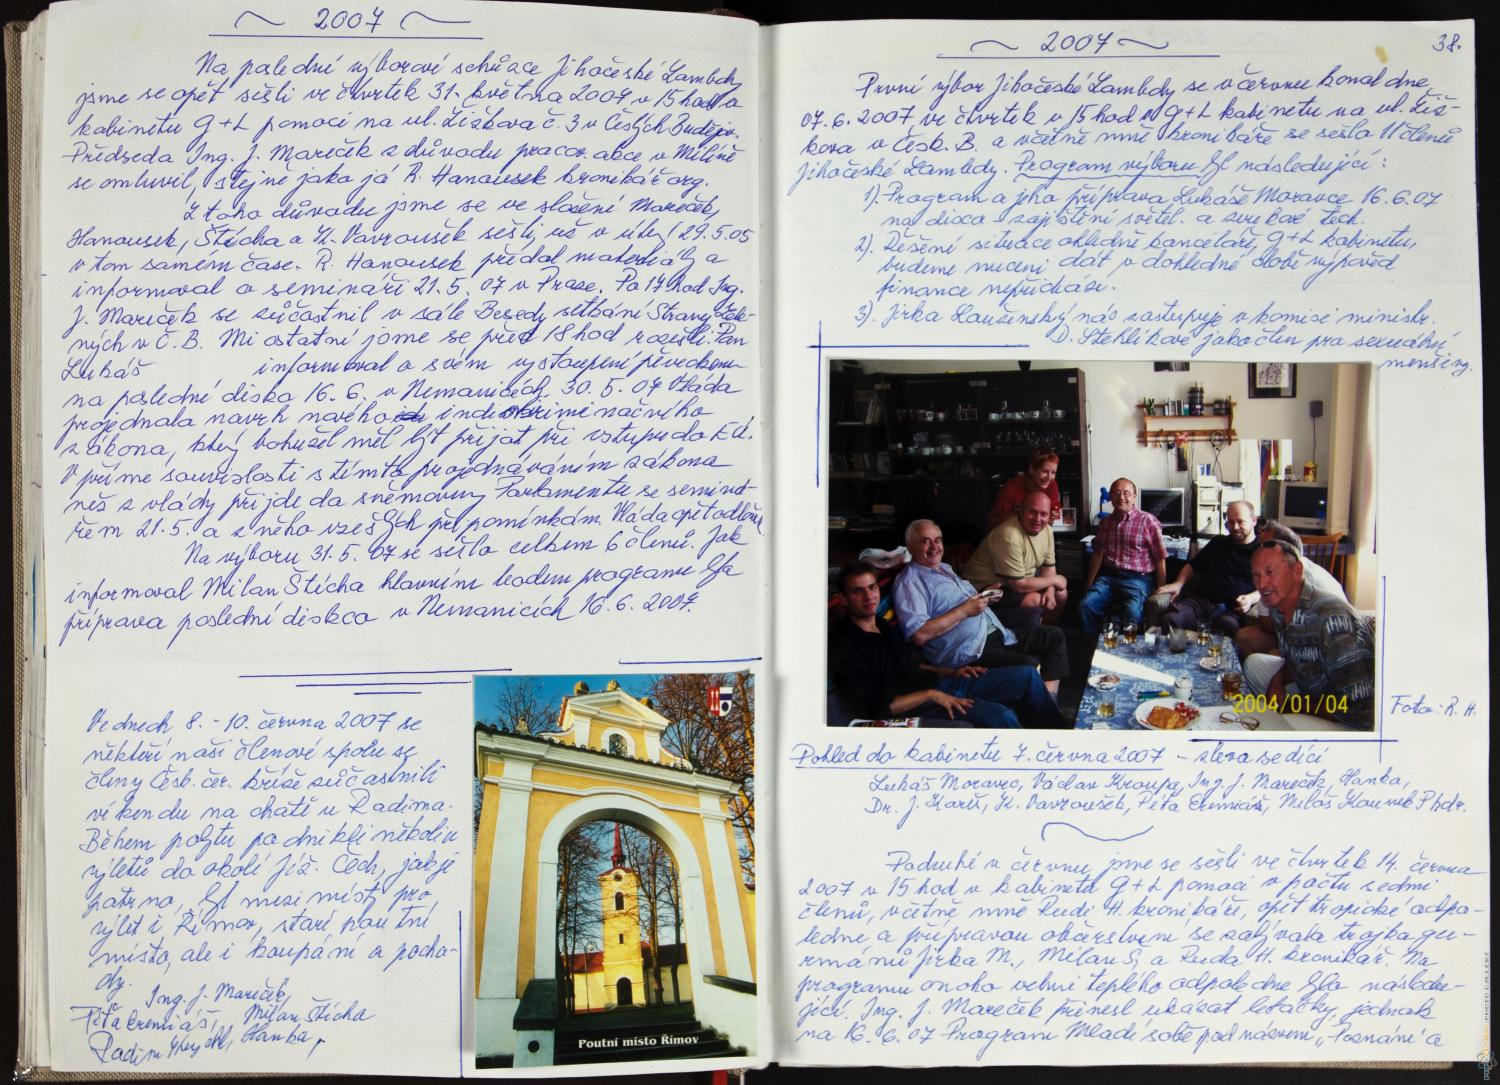 ~ 2007 ~
Na poslední výborové schůzce Jihočeské Lambdy
jsme se opět sešli ve čtvrtek 31. května 2007 v 15 hod v
kabinetu G+L pomoci na ul. Žižkova č. 3 v Českých Budějov.
Předseda Ing. J. Mareček z důvodu pracov. akce v Milíně
se omluvil, stejně jako já R. Hanousek kronikář org.
Z toho důvodu jsme se ve složení Mareček,
Hanousek, Štícha a K. Vavroušek sešli už v úterý 29.5.05
v tom samém čase. R. Hanousek předal materiály a
informoval o semináři 21.5.07 v Praze. Po 17 hod Ing.
J. Mareček se zúčastnil v sále Besedy setkání Strany Zele-
ných v Č.B. Mi ostatní jsme se před 18 hod rozešli. Pan
Lukáš informoval o svém vystoupení pěveckém
na poslední disko 16.6. v Nemanicích. 30.5.07 Vláda
projednala návrh nového
zákona, který bohužel měl být přijat při vstupu do EU.
V přímé souvislosti s tímto projednáváním zákona
než z vlády přijde do sněmovny Parlamentu se seminá-
řem 21.5. a z něho vzešlých připomínkám. Vláda opět odloži
Na výboru 31.5.07 se sešlo celkem 6 členů. Jak
informoval Milan Štícha hlavním bodem programu byla
příprava poslední diskca v Nemanicích 16.6.2007.
Ve dnech 8.-10. června 2007 se
někteří naši členové spolu se
členy Česk. čer. kříže zúčastnili
víkendu na chatě u Radima.
Během pobytu podnikli několik
výletů do okolí Již. Čech, jak je
patrno, byl mezi místy pro
výlet i Římov, staré poutní
místo, ale i koupání a pocho-
dy.
Ing. J. Mareček,
Péťa Eremiáš, Milan Štícha
Radim Hanka,
Poutní místo Římov
~ 2007 ~
38.
První výbor Jihočeské Lambdy se v červnu konal dne
07.6.2007 ve čtvrtek v 15 hod v G+L kabinetu na ul. Žiž-
kova v Česk. B. a včetně mně kronikáře se sešlo 11 členů
Jihočeské Lambdy. Program výboru byl následující:
1). Program a jeho příprava Lukáše Moravce 16.6.07
na disco zajištění světel. a zvukové tech.
2). Řešení situace ohledně kanceláře, G+L kabinetu,
budeme nuceni dát v dohledné době výpověď
finance nepřichází.
3). Jirka nás zastupuje v komisi ministr.
D. Stehlíkové jako člen pro sexuální
menšiny.
2004/01/04
Foto: R. H.
Pohled do kabinetu 7. června 2007 - zleva sedící
Lukáš Moravec, Václav Kroupa, Ing. J. Mareček, Hanka,
Dr. J. Kariš, K. Vavroušek, Péťa Eremiáš, Miloš Phdr.
Podruhé v červnu jsme se sešli ve čtvrtek 14. června
2007 v 15 hod v kabinetu G+L pomoci v počtu sedmi
členů, včetně mně Rudi H. kronikáře, opět tropické odpo-
ledne a přípravou občerstvení se zabývala trojka gur-
mánů Jirka M., Milan Š. a Ruda H. kronikář. Na
programu onoho velmi teplého odpoledne bylo následu-
jící. Ing. J. Mareček přinesl ukázat letáčky, jednak
na 16.6.07 Program Mladí sobě pod názvem „Poznání a